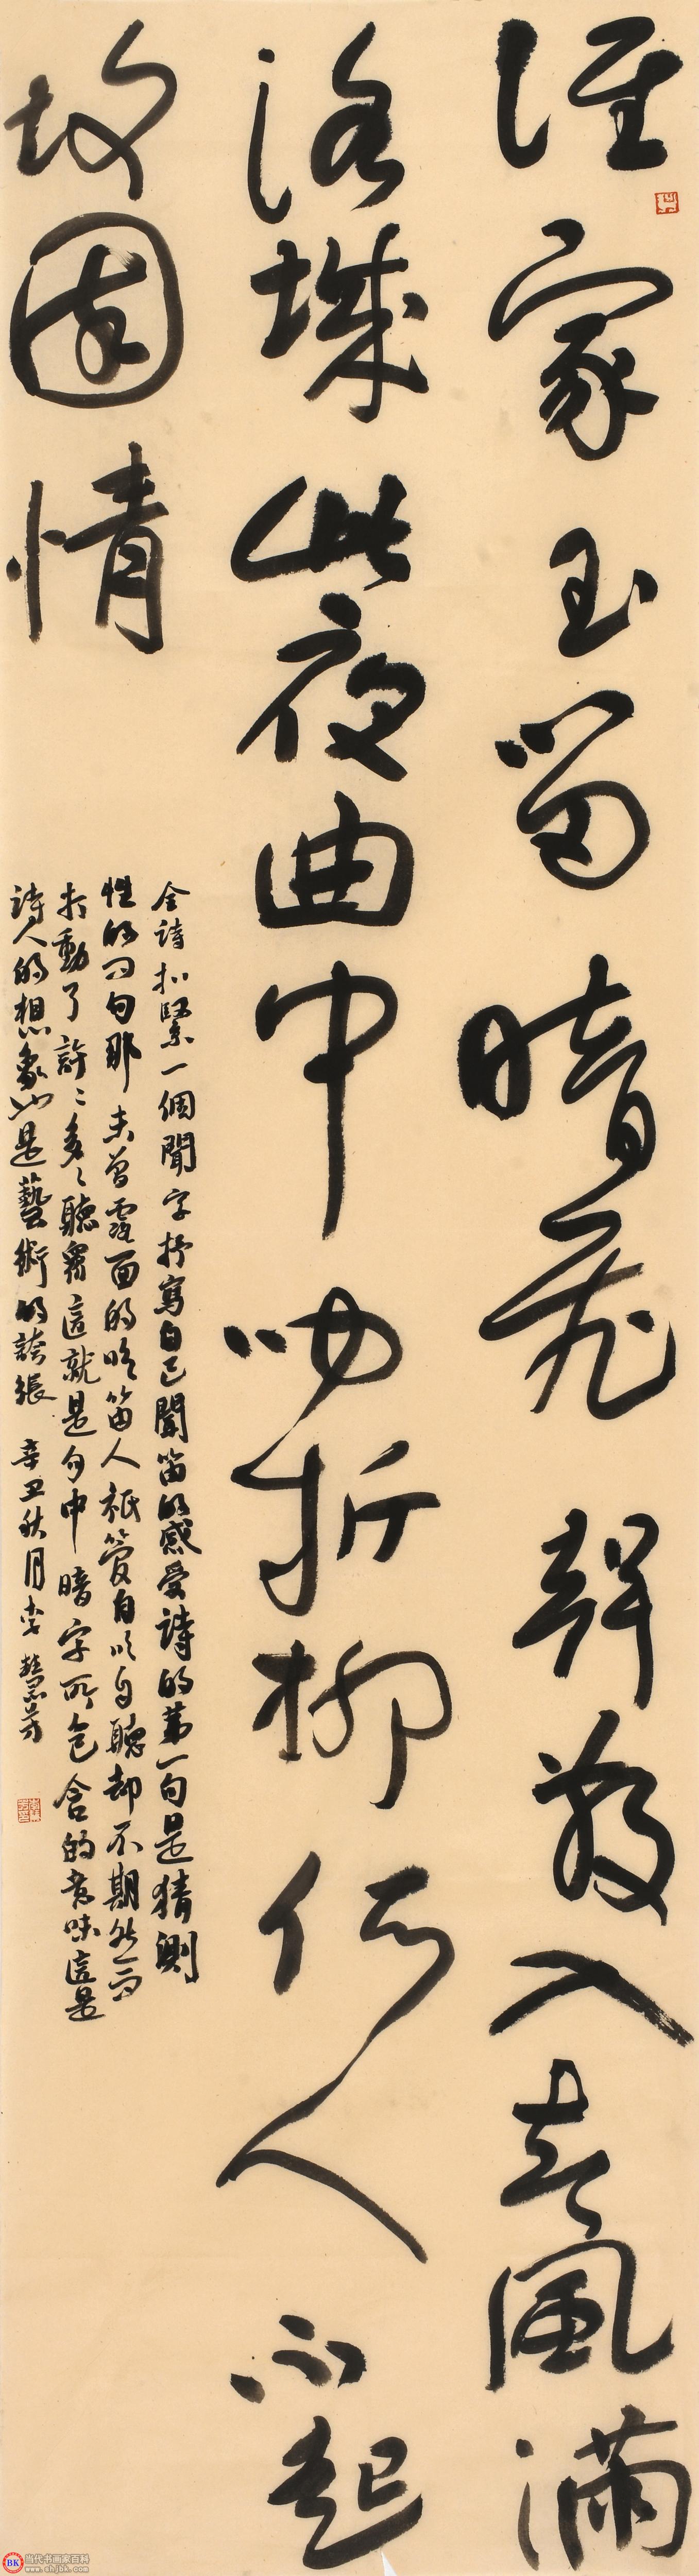 谁家玉笛暗飛聲散入春風滿
洛城此夜曲中聞折柳何人不起
故園情
全詩扣緊一個聞字抒寫自己聞笛的感受詩的第一句是猜測
性的問句那未曾露面的吹笛人衹管自吹自聽却不期然而
打動了許許多多聽衆這就是句中暗字所包含的意味這是
詩人的想象也是藝術的誇張 辛丑秋月李慧芳
BK 当代书画家百科
www.shjbk.com